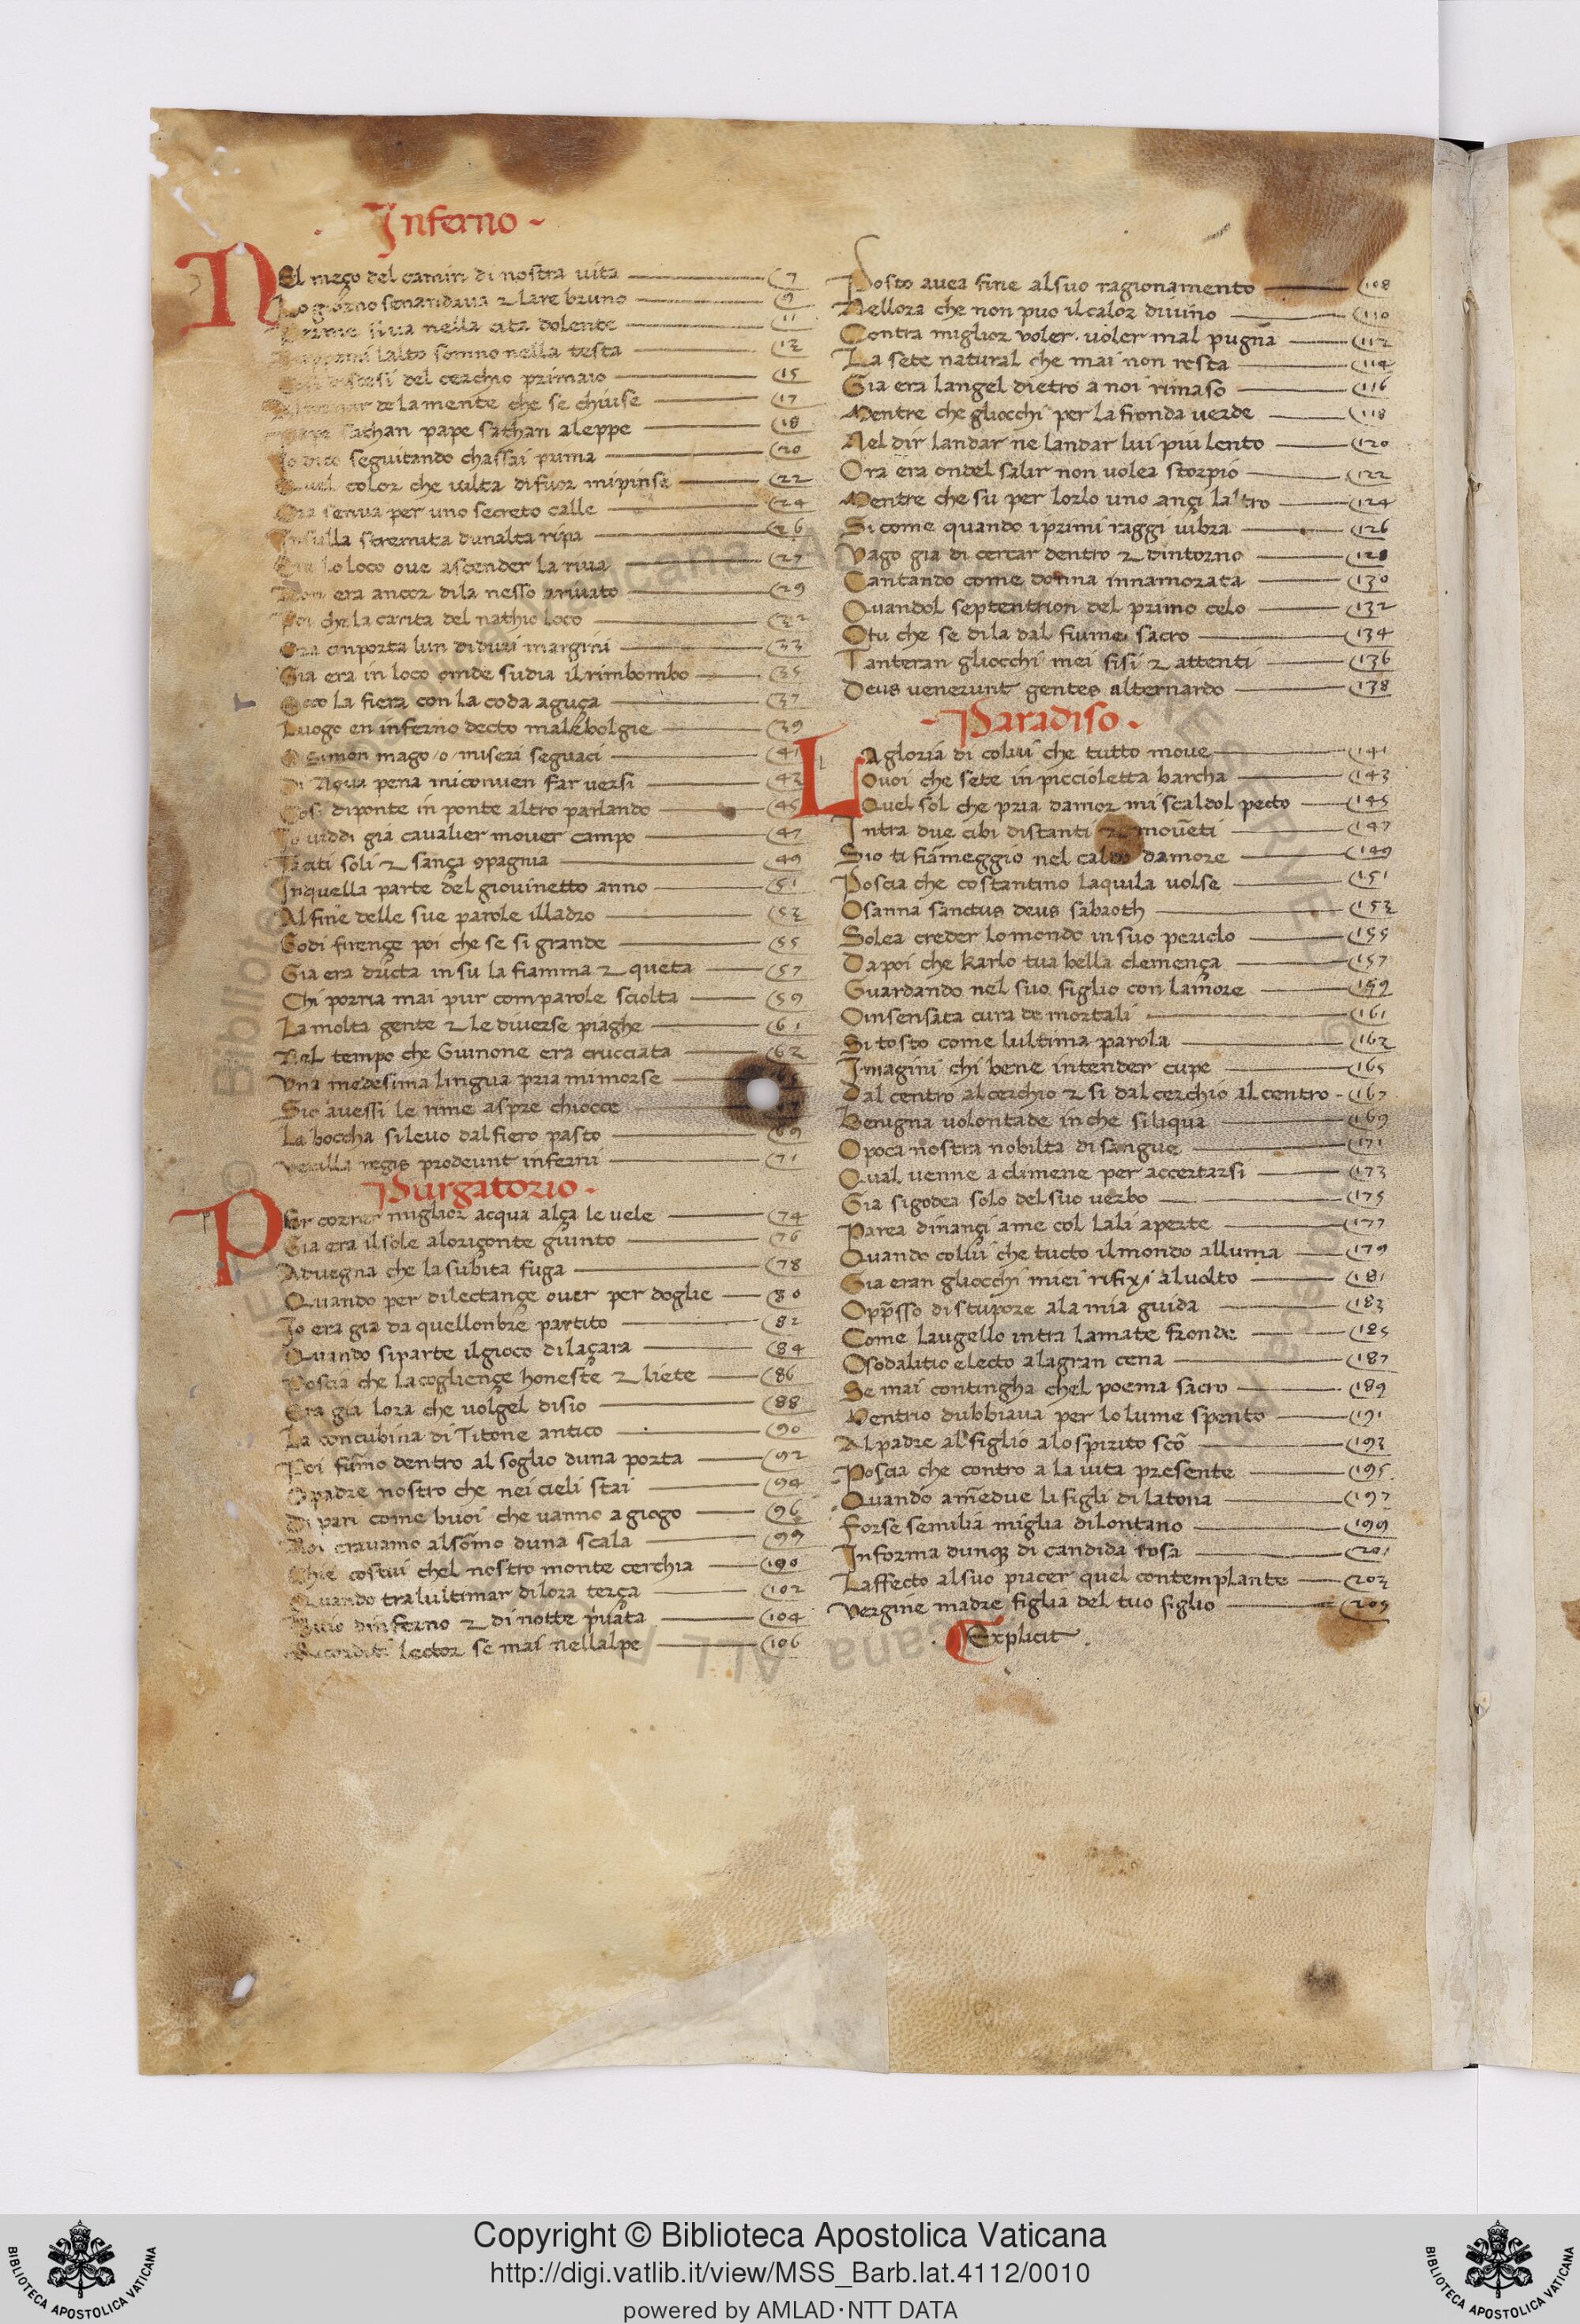 Inferno
NEl meço del camin di nostra uita 7
Lo giorno senandaua & laere bruno 9
Per me si ua nella cita dolente 11
Ruppemi lalto somno nella testa 13
Cosi discesi del cerchio primaio 15
Al tornar de la mente che se chiuse 17
Pape sathan pape sathan aleppe 18
Io dico seguitando chassai prima 20
Quel color che uilta di fuor mi pinse 22
Ora senua per uno secreto calle 24
In sulla stremita dunalta ripa 26
Era lo loco oue ascender la riua 27
Non era ancor di la nesso arriuato 29
Poi che la carita del nathio loco
Ora cinporta lun di duri margini 33
Gia era in loco onde sudia il rimbombo 35
Ecco la fiera con la coda aguça 37
Luogo e in inferno decto malebolgie 39
O Simon mago o miseri seguaci 41
Di Noua pena mi conuien far uersi 43
Cosi di ponte in ponte altro parlando 45
Io uiddi gia caualier mouer campo 47
Taciti soli & sança 9pagnia 49
In quella parte del giouinetto anno 51
Al fine delle sue parole il ladro 53
Godi firençe poi che se si grande 55
Gia era dricta in su la fiamma & queta 57
Chi porria mai pur com parole sciolta 59
La molta gente & le diuerse piaghe 61
Nel tempo che Guinone era crucciata 63
Vna medesima lingua pria mi morse
Sio auessi le rime aspre chiocce
La boccha si leuo dal fiero pasto 69
Vexilla regis prodeunt inferni 71
Purgatorio
PEr correr miglior acqua alça le uele 74
Gia era il sole a loriçonte giunto 76
Aduegna che la subita fuga 78
Quando per dilectançe ouer per doglie 80
Io era gia da quellonbre partito 82
Quando si parte il gioco di laçara 84
Poscia che lacogliençe honeste & liete 86
Era gia lora che uolgel disio 88
La concubina di Titone antico 90
Poi fumo dentro al soglio duna porta 92
O padre nostro che nei cieli stai 94
Di pari come buoi che uanno a giogo 96
Noi erauamo al somo duna scala 99
Chie costui chel nostro monte cerchia 100
Quando tra lultimar di lora terça 102
Buio dinferno & di notte puata 104
Ricorditi lector se mai nellalpe 106
Posto auea fine al suo ragionamento 108
Nellora che non puo il calor diuino 110
Contra miglior uoler uoler mal pugna 112
La sete natural che mai non resta 114
Gia era langel dietro a noi rimaso 116
Mentre che gliocchi per la fronda uerde 118
Nel dir landar ne landar lui piu lento 120
Ora era ondel salir non uolea storpio 122
Mentre che su per lorlo uno ançi laltro 124
Si come quando i primi raggi uibra 126
Vago gia di cercar dentro & dintorno 128
Cantando come donna innamorata 130
Quandol septentrion del primo celo 132
O tu che se di la dal fiume sacro 134
Tanteran gliocchi mei fisi & attenti 136
Deus uenerunt gentes alternardo 138
Paradiso
LA gloria di colui che tutto moue 141
O uoi che sete in piccioletta barcha 143
Quel sol che pria damor mi scaldol pecto 145
Intra due cibi distanti & moueti 147
Sio ti fiameggio nel caldo damore 149
Poscia che costantino laquila uolse 151
Osanna sanctus deus sabaoth 153
Solea creder lo mondo in suo periclo 155
Da poi che karlo tua bella clemença 157
Guardando nel suo figlio con lamore 159
O insensata cura de mortali 161
Si tosto come lultima parola 163
Imagini chi bene intender cupe 165
Dal centro al cerchio & si dal cerchio al centro 167
Benigna uolontade in che si liqua 169
O poca nostra nobilta di sangue 171
Qual uenne a climene per accertarsi 173
Gia si godea solo del suo uerbo 175
Parea dinançi a me col lali aperte 177
Quando collui che tucto il mondo alluma 179
Gia eran gliocchi miei rifixi al uolto 181
Oppsso di stupore a la mia guida 183
Come laugello intra lamate fronde 185
O sodalitio electo a la gran cena 187
Se mai contingha chel poema sacro 189
Mentrio dubbiaua per lo lume spento 191
Al padre al figlio a lo spirito sco 193
Poscia che contro a la uita presente 195
Quando amedue li figli di latona 197
Forse semilia miglia di lontano 199
In forma dunq di candida rosa 201
Laffecto al suo piacer quel contemplante 203
Vergine madre figlia del tuo figlio 205
Explicit
Copyright © Biblioteca Apostolica Vaticana
http://digi.vatlib.it/view/MSS_Barb.lat.4112/0010
powered by AMLAD·NTT DATA
BIBLIOTECA APOSTOLICA VATICANA
BIBLIOTECA APOSTOLICA VATICANA